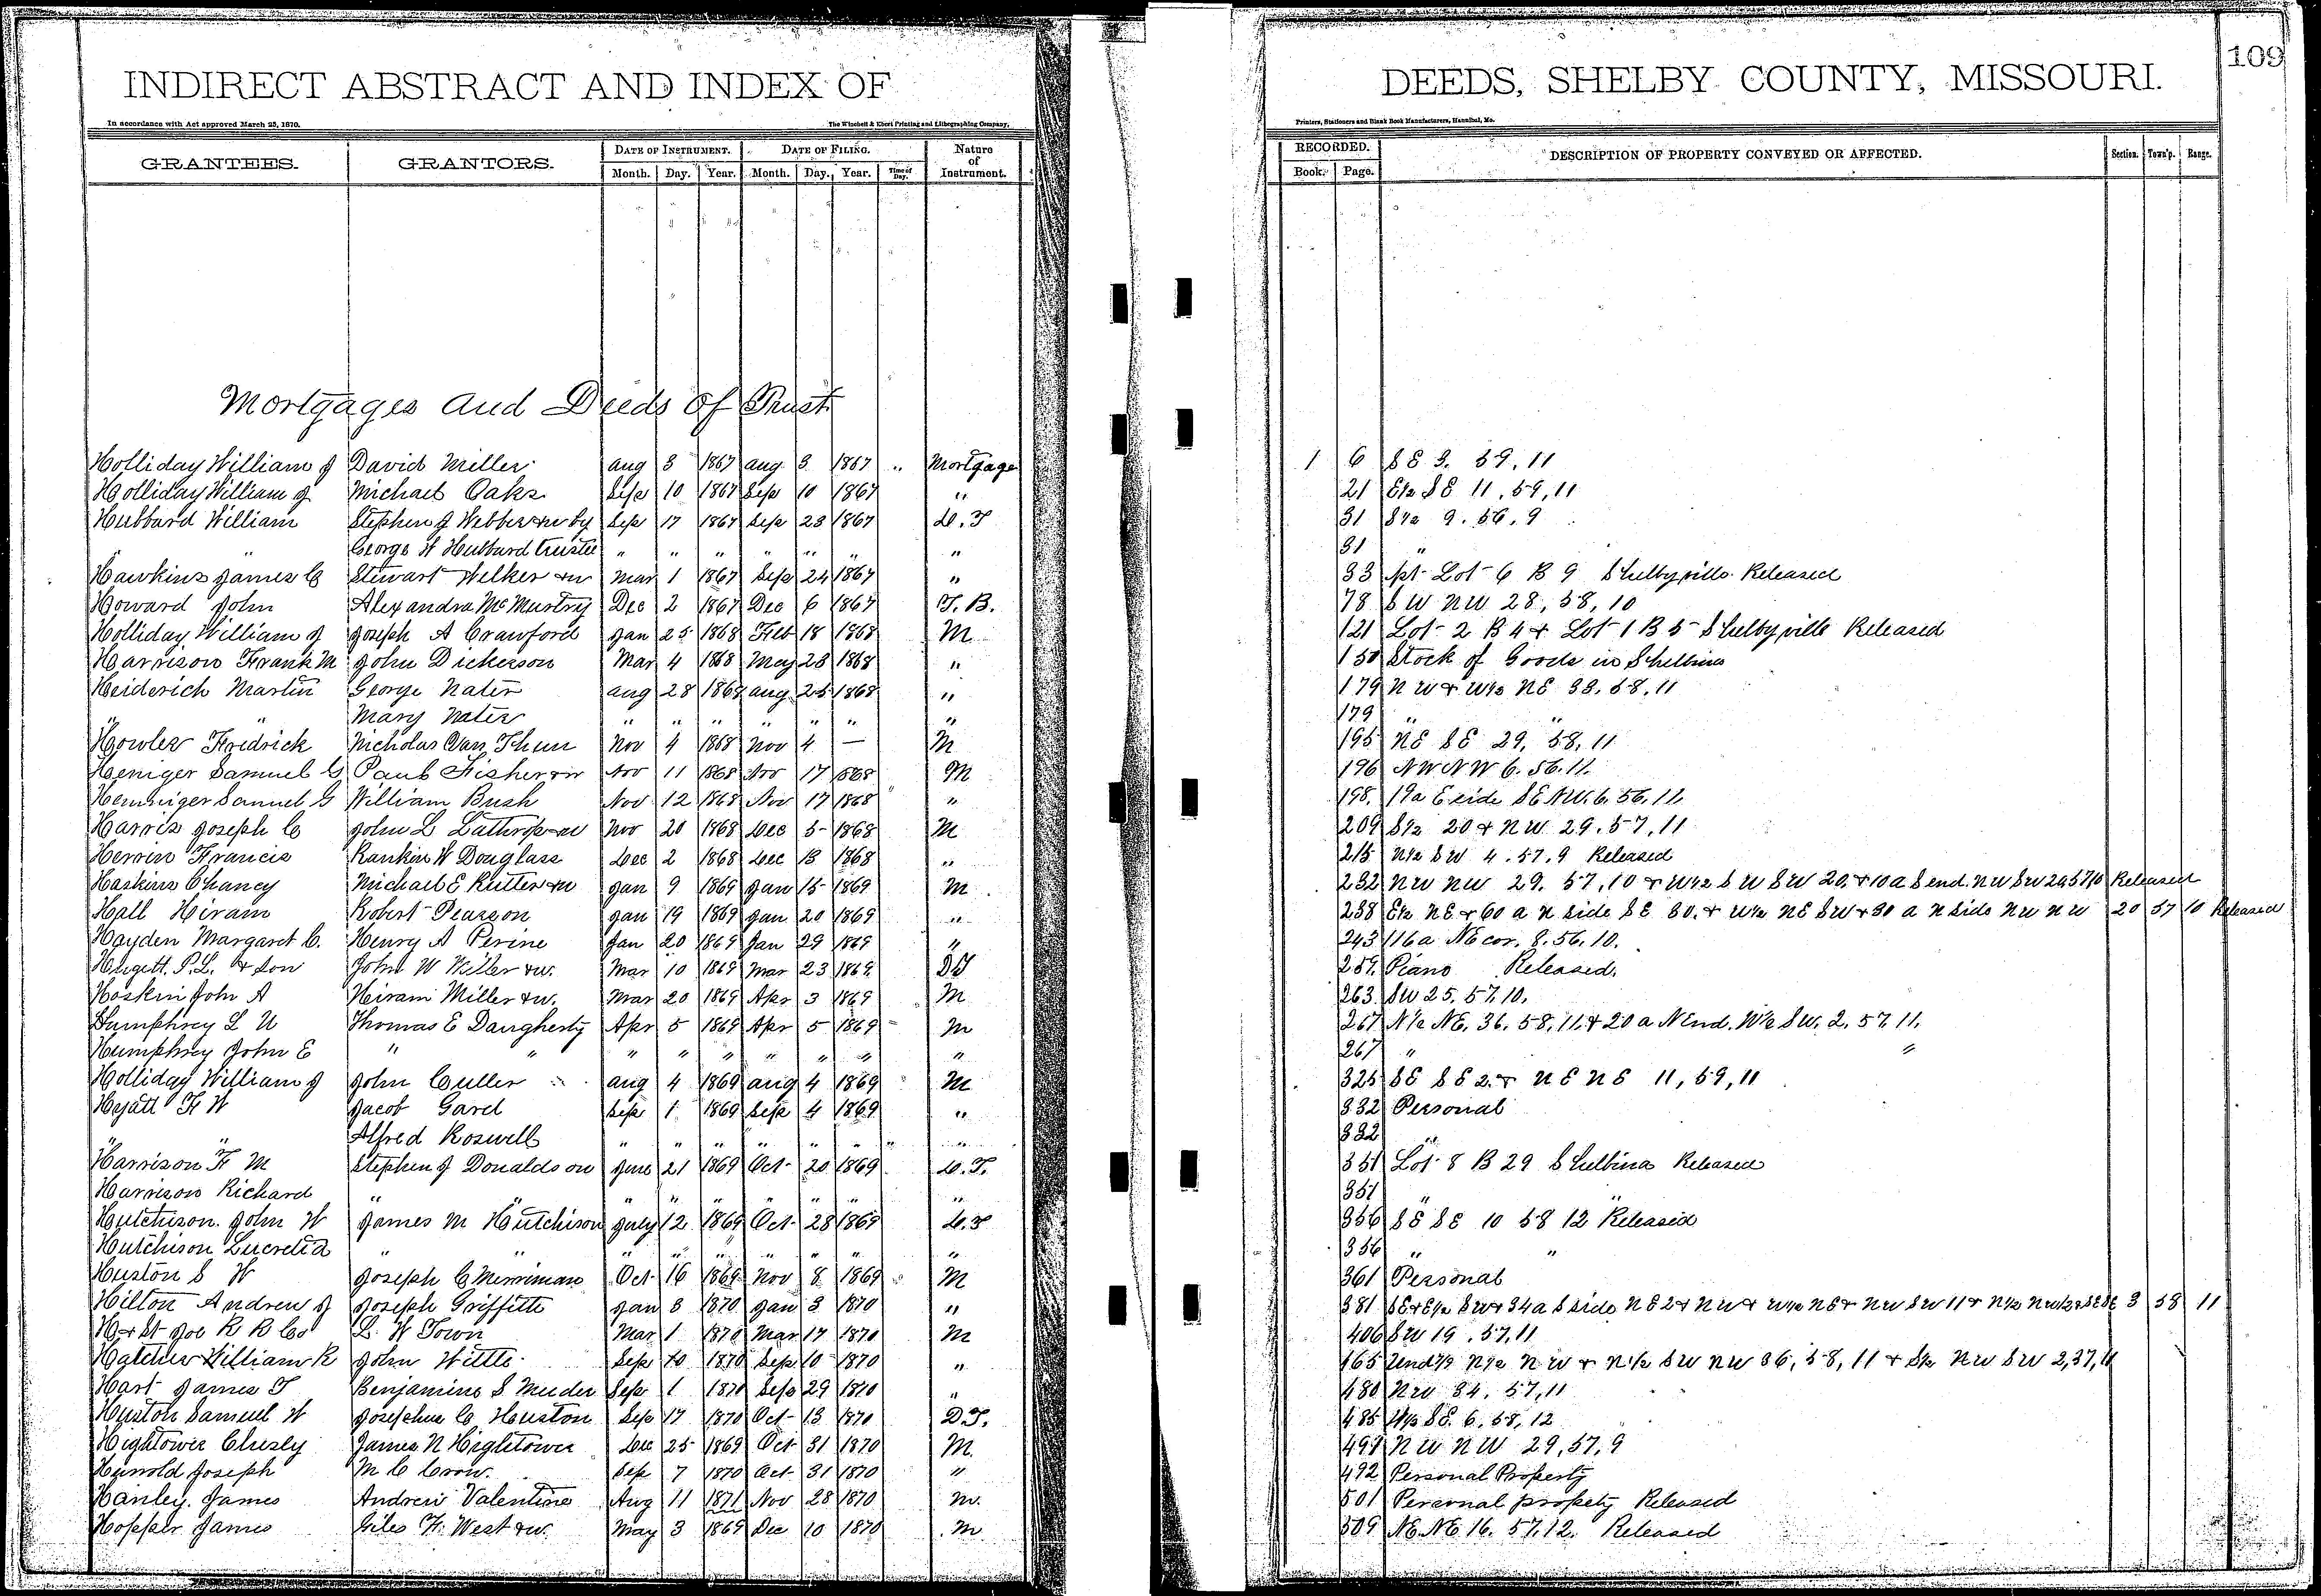 INDIRECT ABSTRACT AND INDEX OF
DEEDS, SHELBY COUNTY, MISSOURI.
109
In accordance with Act approved March 25, 1870.
The Winchell & Ebert Printing and Lithographing Company,
Printers, Stationers and Blank Book Manufacturers, Hannibal, Mo.
GRANTEES. GRANTORS. DATE OF INSTRUMENT. DATE OF FILING. Nature of Instrument. RECORDED. DESCRIPTION OF PROPERTY CONVEYED OR AFFECTED. Section. Town'p. Range.
Month. Day. Year. Month. Day. Year. Time of Day. Book. Page.
Mortgages and Deeds of Trust
Holliday William J David Miller Aug 3 1867 Aug 3 1867 " Mortgage 1 6 SE 3. 59, 11
Holliday William J Michael Oaks Sep 10 1867 Sep 10 1867 " 21 E½ SE 11, 59, 11
Hubbard William Stephen J Webber & w by Sep 17 1867 Sep 23 1867 D. T 31 S½ 9. 56, 9
" " George W Hubbard trustee " " " " " " " 31 "
Hawkins James C Stewart Welker & w Mar 1 1867 Sep 24 1867 " 33 pt Lot 6 B 9 Shelbyville Released
Howard John Alexandra McMustry Dec 2 1867 Dec 6 1867 T. B. 78 SW NW 28, 58, 10
Holliday William J Joseph A Crawford Jan 25 1868 Feb 18 1868 M 121 Lot 2 B 4 & Lot 1 B 5 Shelbyville Released
Harrison Frank M John Dickerson Mar 4 1868 May 23 1868 " 150 Stock of Goods in Shelbina
Heiderich Martin George Nater Aug 28 1868 Aug 25 1868 " 179 NW & W½ NE 33, 58, 11
" " Mary Nater " " " " " " " 179 " "
Howler Fredrick Nicholas Van Thun Nov 4 1868 Nov 4 — M 195 NE SE 29, 58, 11
Heniger Samuel G Paul Fisher & w Nov 11 1868 Nov 17 1868 M 196 NW NW 6. 56. 11.
Henniger Samuel G William Bush Nov 12 1868 Nov 17 1868 " 198. 19a E side SE NW. 6. 56, 11,
Harris Joseph C John L Lathrop & w Nov 20 1868 Dec 5 1868 M 209 S½ 20 & NW 29. 57, 11
Herrin Francis Rankin W Douglass Dec 2 1868 Dec 13 1868 " 215 N½ SW 4. 57. 9 Released
Haskins Chancy Michael E Rutter & w Jan 9 1869 Jan 15 1869 M 232 NW NW 29. 57, 10 & W½ SW SW 20. & 10 a S end. NW SW 20, 57, 10 Released
Hall Hiram Robert Pearson Jan 19 1869 Jan 20 1869 " 238 E½ NE & 60 a N side SE 30. & W½ NE SW & 30 a N side NW NW 20 57 10 Released
Hayden Margaret C. Henry A Perine Jan 20 1869 Jan 29 1869 " 243 116 a NE cor. 8. 56. 10.
Hugett. P. L. & Son John W Willer & w. Mar 10 1869 Mar 23 1869. DT 259. Piano Released.
Hoskin John A Hiram Miller & w. Mar 20 1869 Apr 3 1869 M 263. SW 25. 57. 10.
Humphrey L U Thomas E Daugherty Apr 5 1869 Apr 5 1869 " M 267 N½ NE. 36. 58, 11. & 20 a N End. W½ SW. 2. 57. 11.
Humphrey John E " " " " " " " " " 267 " "
Holliday William J John Culler Aug 4 1869 Aug 4 1869 M 325 SE SE 2. & NE NE 11, 59, 11
Hyatt F W Jacob Gard Sep 1 1869 Sep 4 1869 " 332 Personal
" " Alfred Roswell " " " " " " " " 332 "
Harrison F M Stephen J Donaldson June 21 1869 Oct 20 1869 D. T. 351 Lot 8 B 29 Shelbina Released
Harrison Richard " " " " " " " " 351 " "
Hutchison. John W James M Hutchison July 12 1869 Oct 28 1869 D. T 356 SE SE 10 58 12 Released
Hutchison Lucretia " " " " " " " " " 356 " "
Huston S W Joseph C Merriman Oct 16 1869 Nov 8 1869 M 361 Personal
Hilton Andrew J Joseph Griffith Jan 3 1870 Jan 3 1870 " 381 SE & E½ SW & 34 a S side NE 2 & NW & W½ NE & NW SW 11 & N½ NW½ & SE SE 3 58 11
H & St Joe R R Co L. W Town Mar 1 1870 Mar 17 1870 M 406 SW 19. 57, 11
Hatcher William R John Wittle Sep 10 1870 Sep 10 1870 " 165 N½ NW & N½ SW NW 36, 58, 11 & S½ NW SW 2, 37, 11
Hart James T Benjamine S Meeder Sep 1 1870 Sep 29 1870 " 480 NW 34. 57, 11
Huston Samuel W Josephus C Houston Sep 17 1870 Oct 13 1870 D. T. 485 W½ SE. 6. 58, 12
Hightower Chesly James N Hightower Dec 25 1869 Oct 31 1870 M. 491 NW NW 29, 57, 9
Hunold Joseph M C Crow. Sep 7 1870 Oct 31 1870 " 492 Personal Property
Hanley. James Andrew Valentine Aug 11 1871 Nov 28 1870 M. 501 Personal propety Released
Hopper James Giles F. West & w. May 3 1869 Dec 10 1870 M 509 NE NE 16. 57. 12. Released